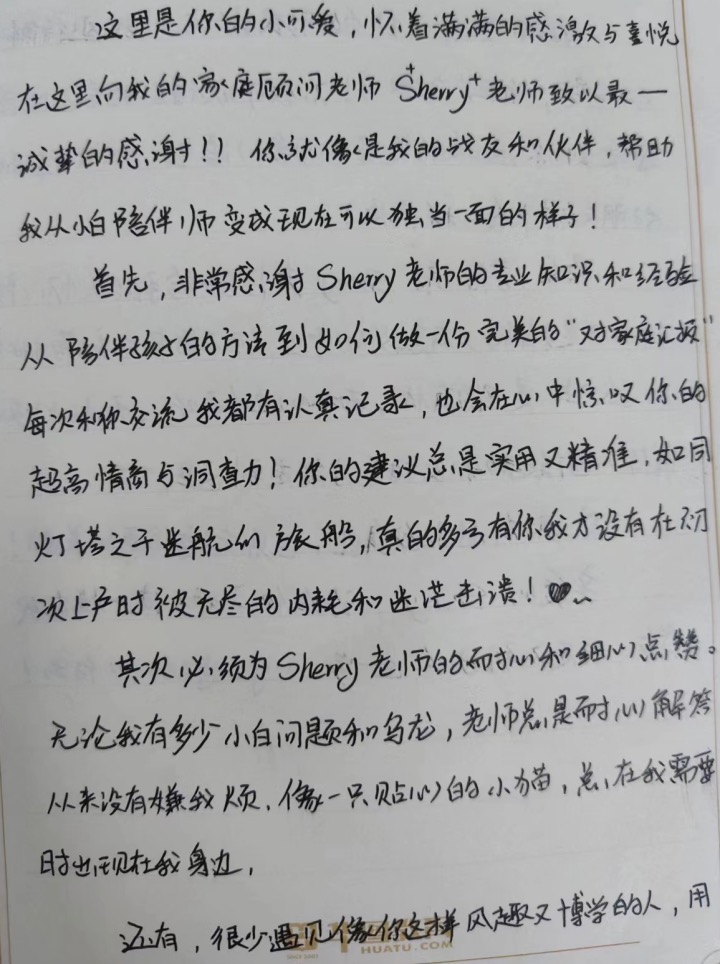 这里是你的小可爱，怀着满满的感激与喜悦
在这里向我的家庭顾问老师 Sherry 老师致以最
诚挚的感谢！！你就像是我的战友和伙伴，帮助
我从小白陪伴师变成现在可以独当一面的样子！
首先，非常感谢 Sherry 老师的专业知识和经验
从陪伴孩子的方法到如何做一份完美的“对家庭汇报”
每次和你交流我都有认真记录，也会在心中惊叹你的
超高情商与洞查力！你的建议总是实用又精准，如同
灯塔之于迷航的旅船，真的多亏有你我才没有在初
次上户时被无尽的内耗和迷茫击溃！
其次，必须为 Sherry 老师的耐心和细心点赞。
无论我有多少小白问题和乌龙，老师总是耐心解答
从来没有嫌我烦，像一只贴心的小猫，总在我需要
时出现在我身边，
还有，很少遇见像你这样风趣又博学的人，用
HUATU.COM